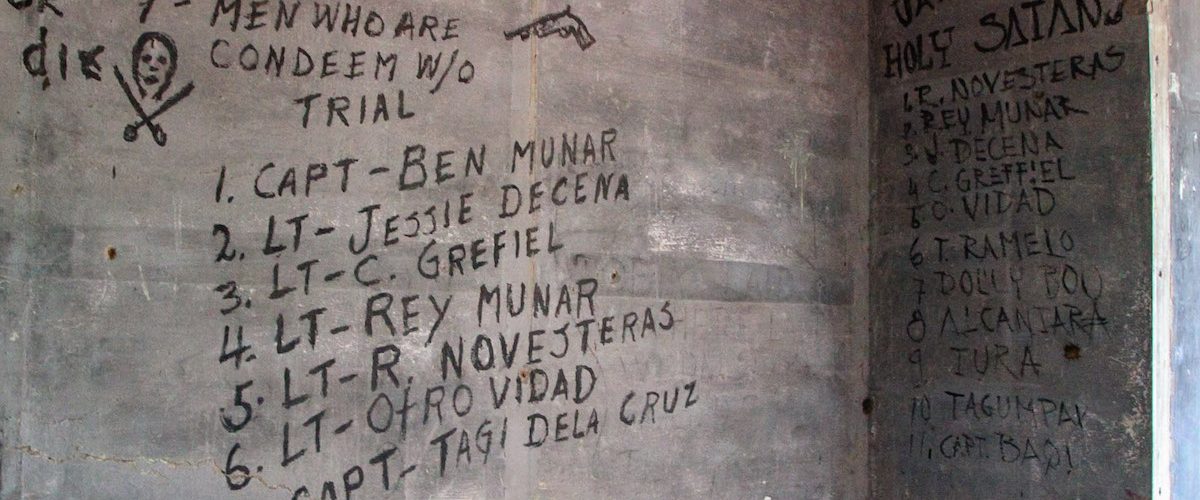 7- MEN WHO ARE
die CONDEEM W/O
TRIAL
1. CAPT - BEN MUNAR
2. LT - JESSIE DECENA
3. LT - C. GREFIEL
4. LT - REY MUNAR
5. LT - R. NOVESTERAS
6. LT - OtRO VIDAD
CAPT - TAGI DELA CRUZ
HOLY SATAN
1. R. NOVESTERAS
2. REY MUNAR
3. J. DECENA
4 C. GREFFIEL
5 O. VIDAD
6 T. RAMELO
7 DOLLY BOY
8 ALCANTARA
9 TURA
10 TAGUMPAY
11. CAPT. BAQ!